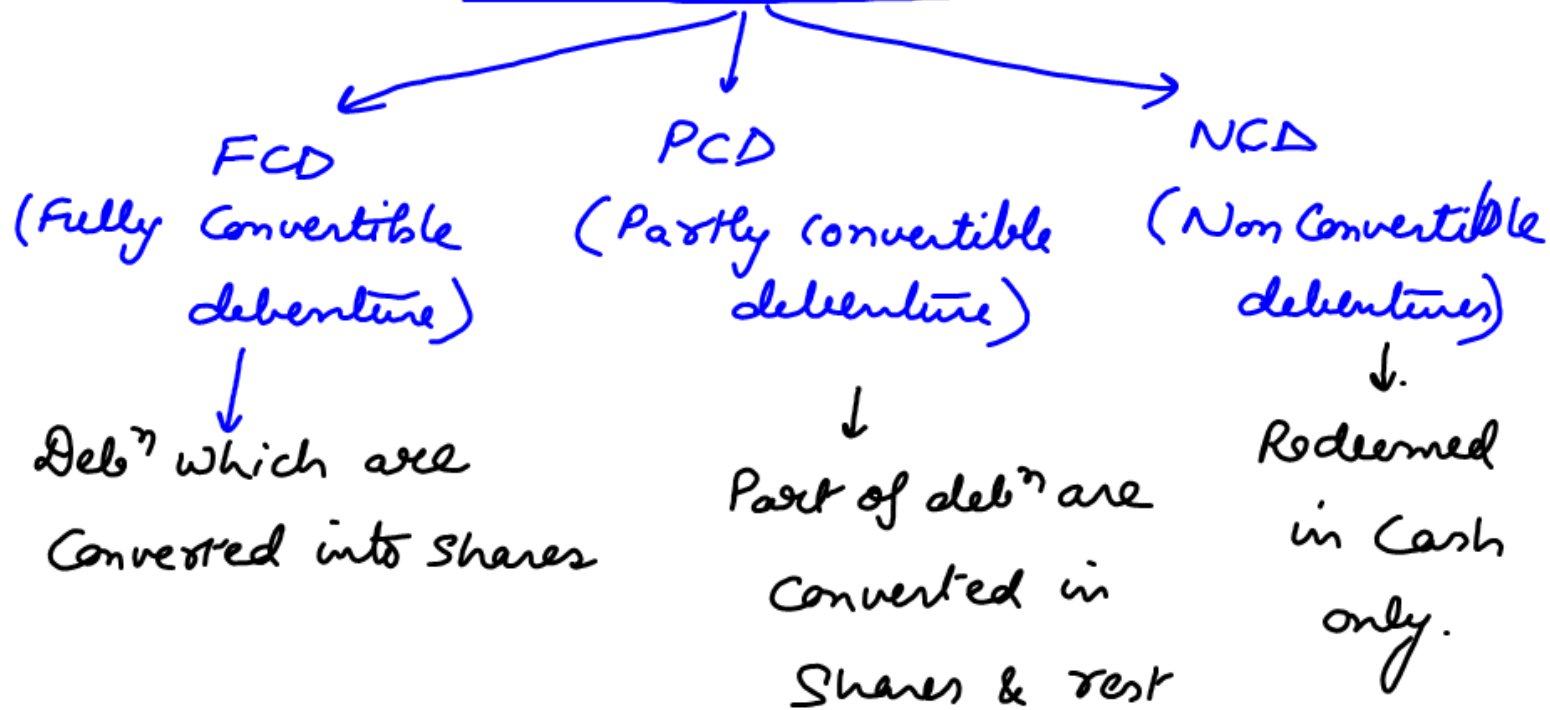 FCD
(Fully Convertible
debenture)
Debⁿ which are
Converted into shares
PCD
(Partly convertible
debenture)
Part of debⁿ are
Converted in
Shares & rest
NCD
(Non Convertible
debentures)
Redeemed
in Cash
only.